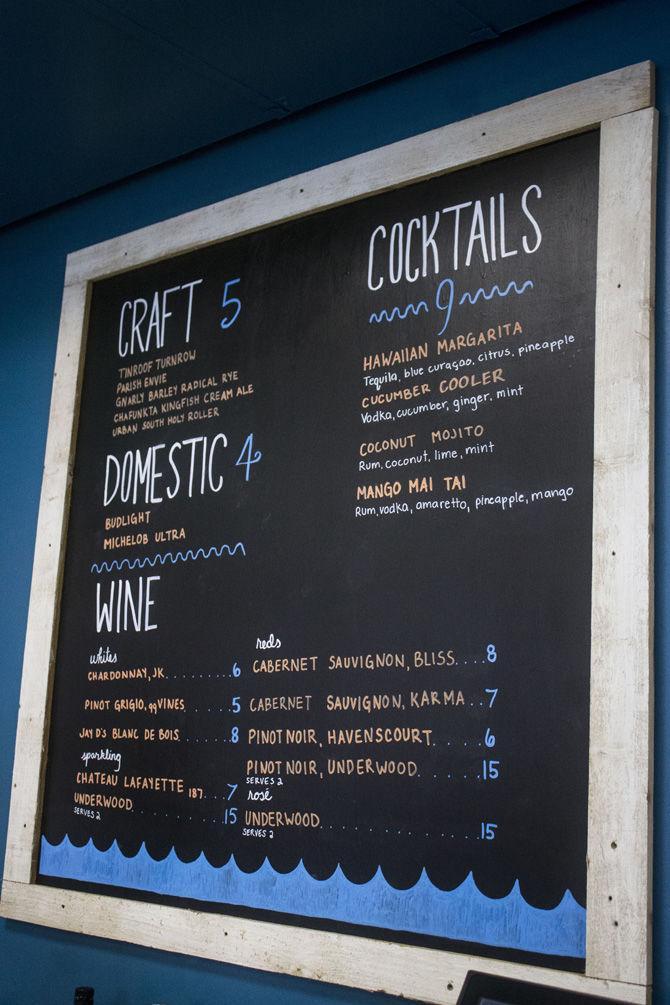 CRAFT 5
TINROOF TURNROW
PARISH ENVIE
GNARLY BARLEY RADICAL RYE
CHAFUNKTA KINGFISH CREAM ALE
URBAN SOUTH HOLY ROLLER
DOMESTIC 4
BUDLIGHT
MICHELOB ULTRA
COCKTAILS
9
HAWAIIAN MARGARITA
Tequila, blue curaçao, citrus, pineapple
CUCUMBER COOLER
Vodka, cucumber, ginger, mint
COCONUT MOJITO
Rum, coconut, lime, mint
MANGO MAI TAI
Rum, vodka, amaretto, pineapple, mango
WINE
whites
CHARDONNAY, JK........6
PINOT GRIGIO, 99 VINES.......5
JAY D'S BLANC DE BOIS......8
sparkling
CHATEAU LAFAYETTE 187...7
UNDERWOOD..........15
SERVES 2
reds
CABERNET SAUVIGNON, BLISS....8
CABERNET SAUVIGNON, KARMA..7
PINOT NOIR, HAVENSCOURT.....6
PINOT NOIR, UNDERWOOD......15
SERVES 2
rosé
UNDERWOOD................15
SERVES 2